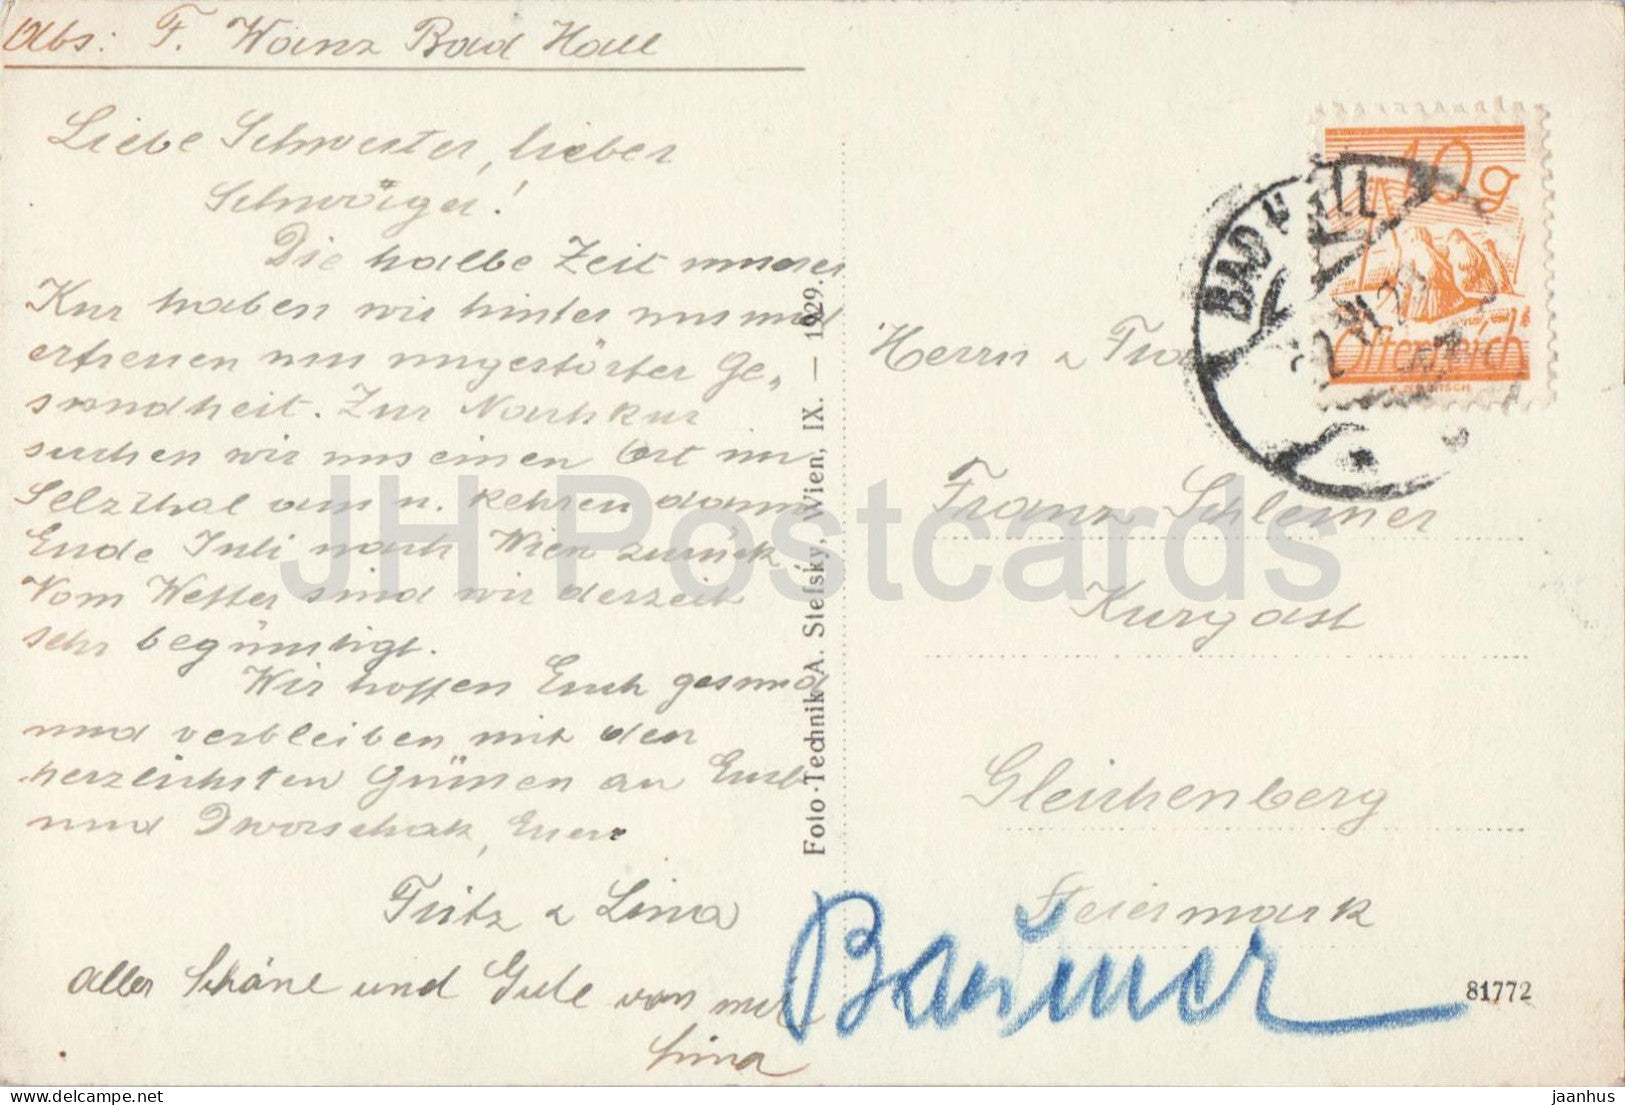 Abs: F. Wanz Bad Hall
Liebe Schwester, lieber
Schwager!
Die halbe Zeit unserer
Kur haben wir hinter uns und
erfreuen uns ungestörter Ge-
sundheit. Zur Nachkur
suchen wir uns einen Ort im
Selzthal aus u. kehren dann
Ende Juli nach Wien zurück.
Vom Wetter sind wir derzeit
sehr begünstigt.
Wir hoffen Euch gesund
und verbleiben mit den
herzlichsten Grüssen an Euch
und Dworschak, Euere
Fritz & Lina
alles Schöne und Gute von mir
Lina
Foto-Technik A. Stefsky, Wien, IX. — 1929.
10g
Österreich
BAD HALL
Herrn & Frau
Franz Schleimer
Kurgast
Gleichenberg
Steiermark
81772
JH Postcards
jaanhus
delcampe.net